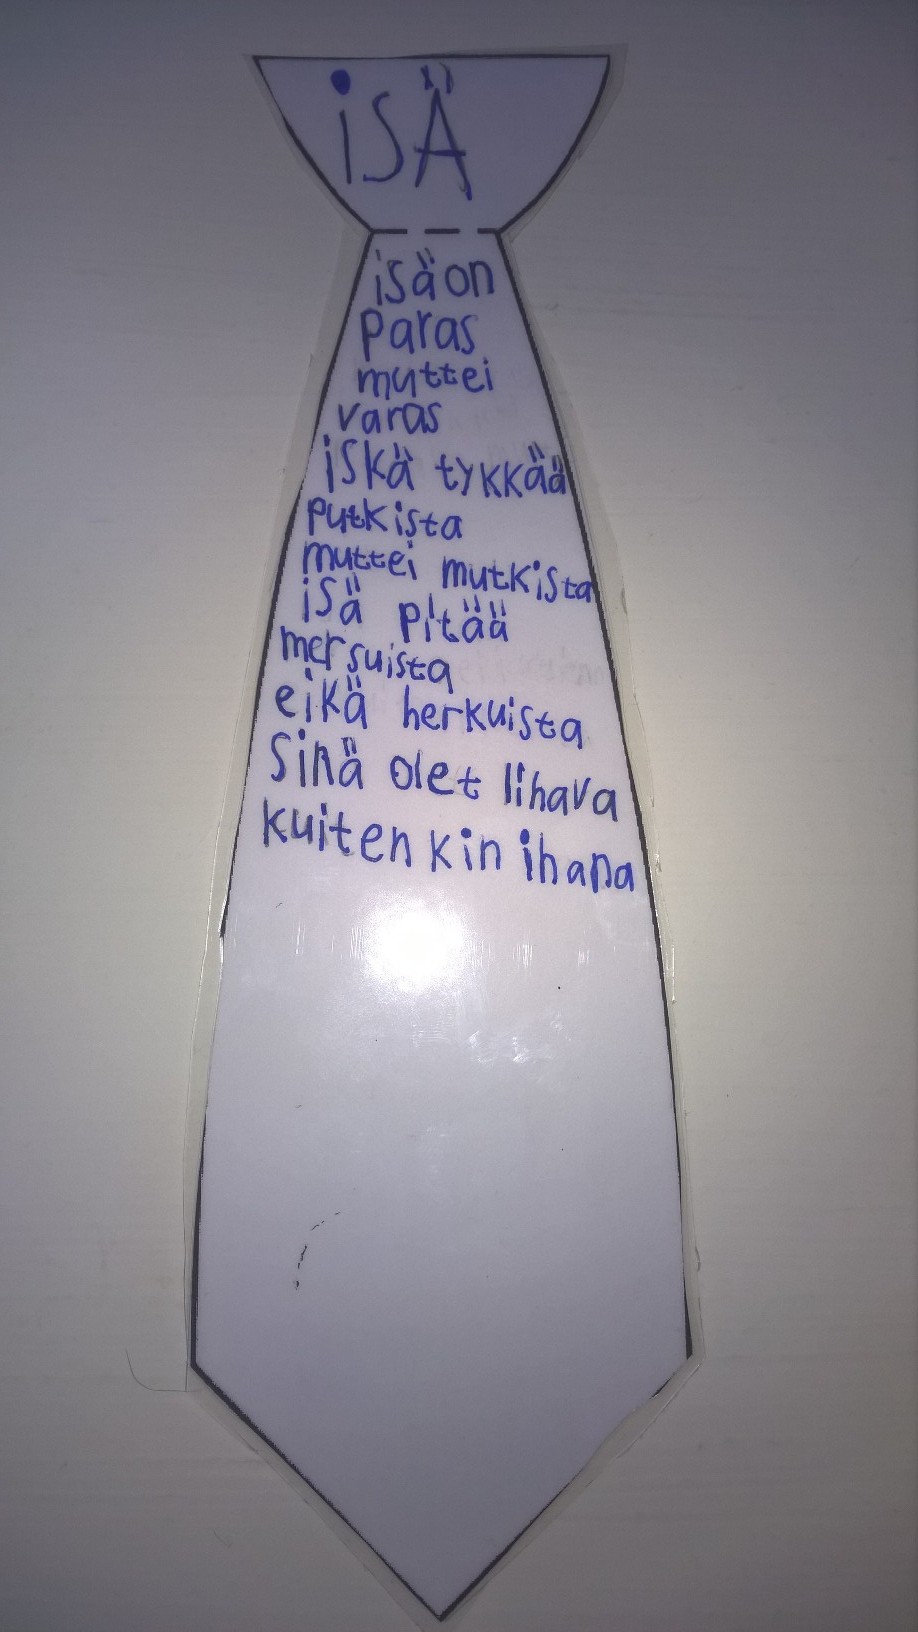 iSÄ
isä on
Paras
muttei
varas
iskä tykkää
putkista
muttei mutkista
isä pitää
mersuista
eikä herkuista
Sinä olet lihava
kuitenkin ihana